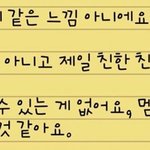 같은 느낌 아니에요
아니고 제일 친한 친
있는 게 없어요,
같아요.